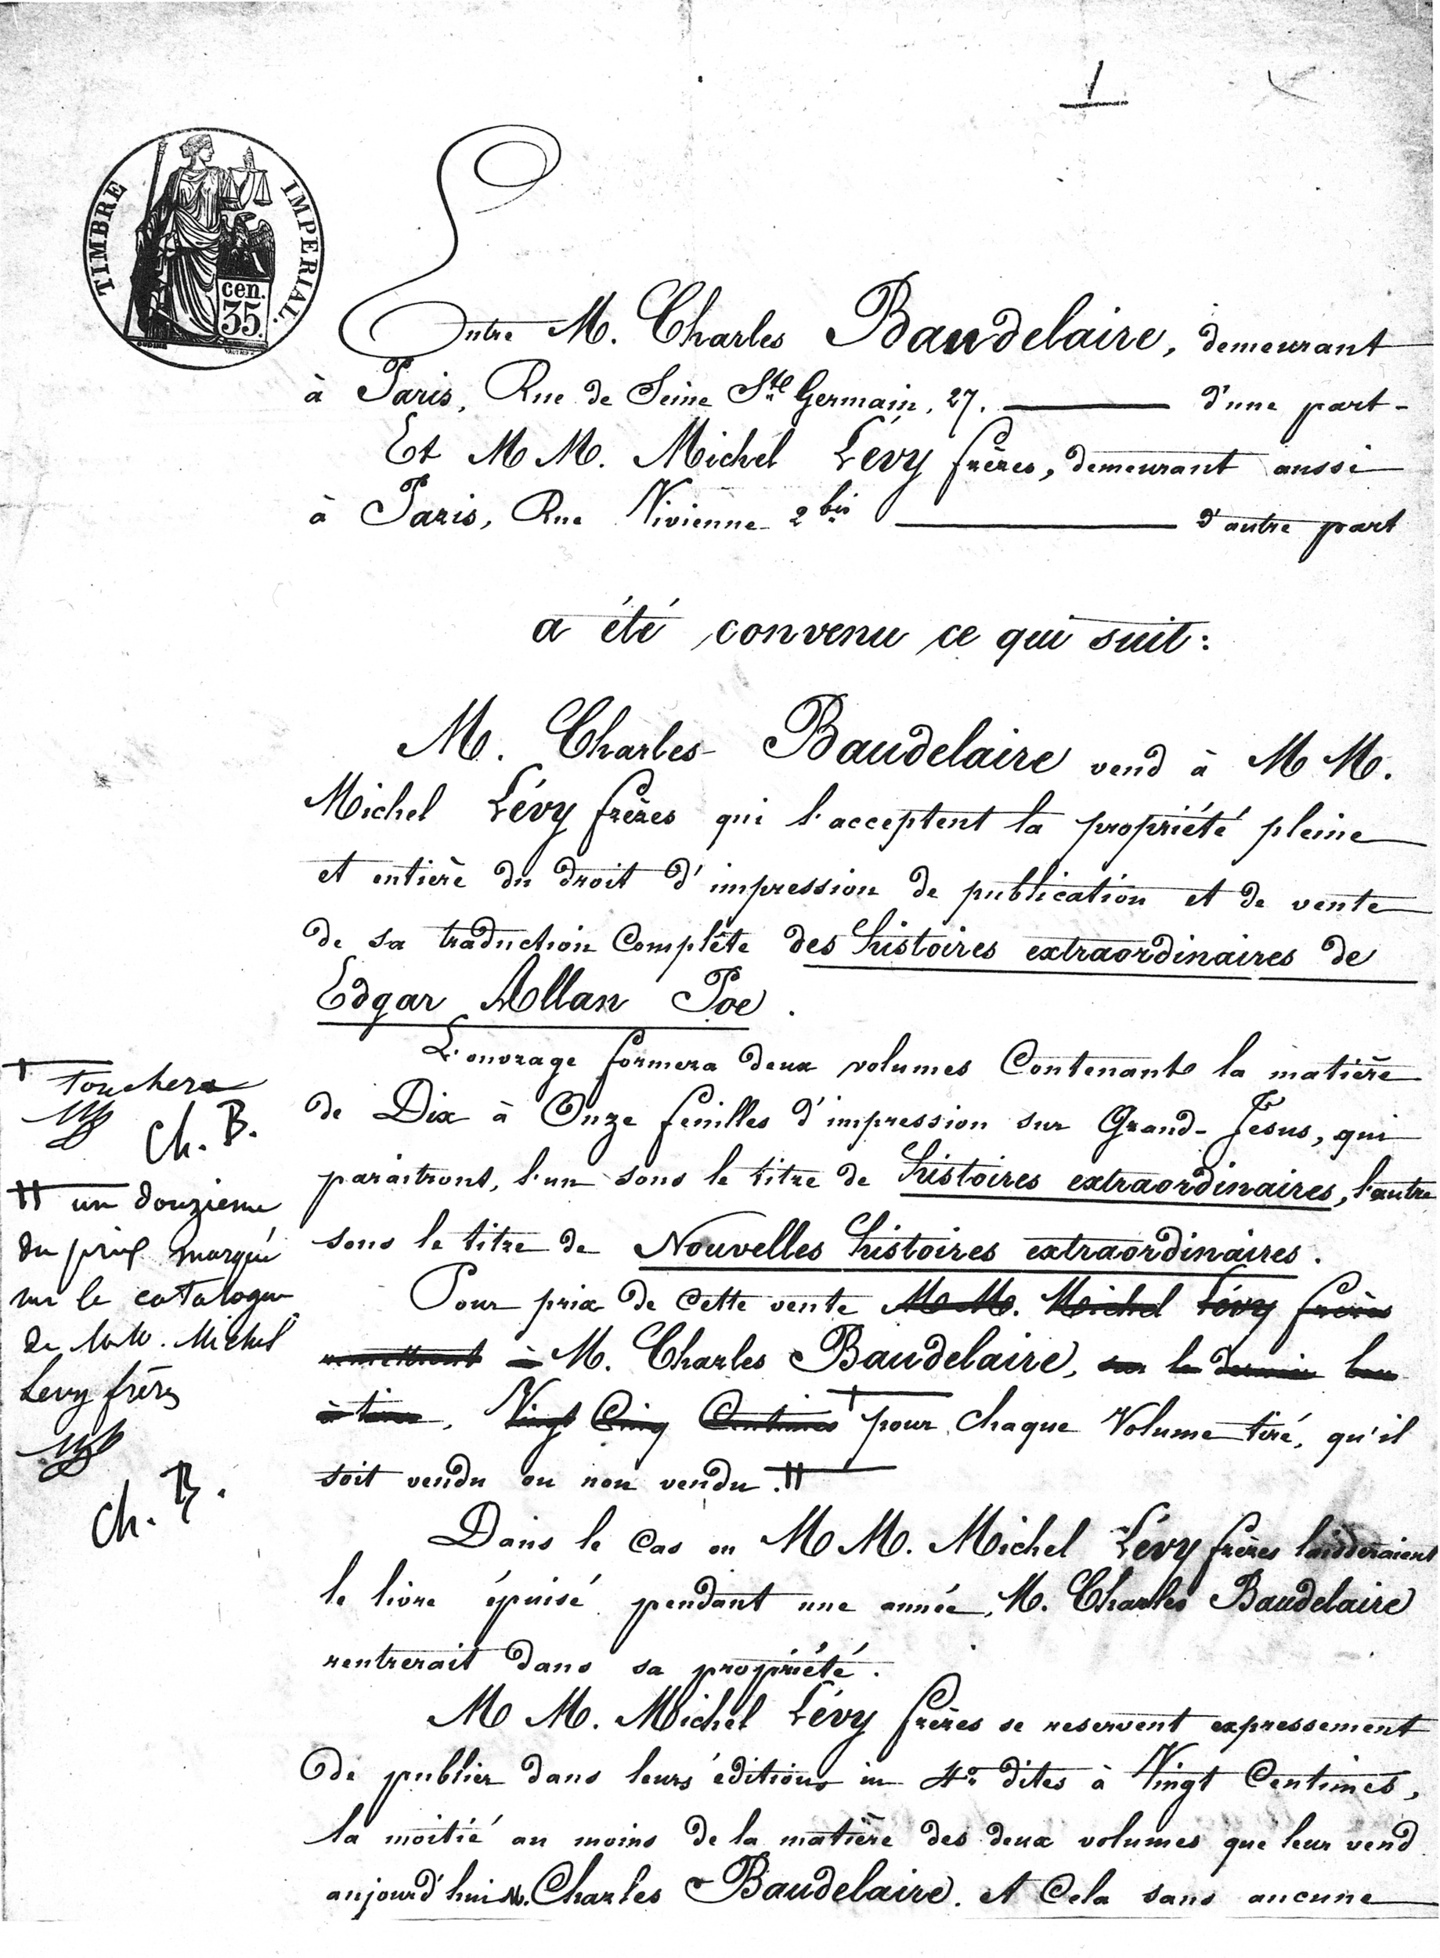 1
TIMBRE IMPERIAL.
cen.
35
Entre M. Charles Baudelaire, demeurant
à Paris, Rue de Seine Ste Germain, 27. d'une part -
Et M M. Michel Lévy frères, demeurant aussi
à Paris, Rue Vivienne 2 bis d'autre part
a été convenu ce qui suit :
M. Charles Baudelaire vend à M M.
Michel Lévy frères qui l'acceptent la propriété pleine
et entière du droit d'impression de publication et de vente
de sa traduction Complète des histoires extraordinaires de
Edgar Allan Poe.
L'ouvrage formera deux volumes Contenant la matière
de Dix à Onze feuilles d'impression sur Grand-Jesus, qui
paraitront, l'un sous le titre de histoires extraordinaires, l'autre
sous le titre de Nouvelles histoires extraordinaires.
Pour prix de cette vente M M. Michel Lévy frères
remettront à M. Charles Baudelaire, sur le dernier bon
à tirer, Vingt Cinq Centimes † pour chaque Volume tiré, qu'il
soit vendu ou non vendu. ††
Dans le Cas ou M M. Michel Lévy frères laisseraient
le livre épuisé pendant une année, M. Charles Baudelaire
rentrerait dans sa propriété.
M M. Michel Lévy frères se reservent expressement
de publier dans leurs éditions in 4o dites à Vingt Centimes,
la moitié au moins de la matière des deux volumes que leur vend
aujourd'hui M. Charles Baudelaire. et Cela sans aucune
† touchera
Ch. B.
†† un douzieme
du prix marqué
sur le catalogue
de M.M. Michel
Levy frères
Ch. B.